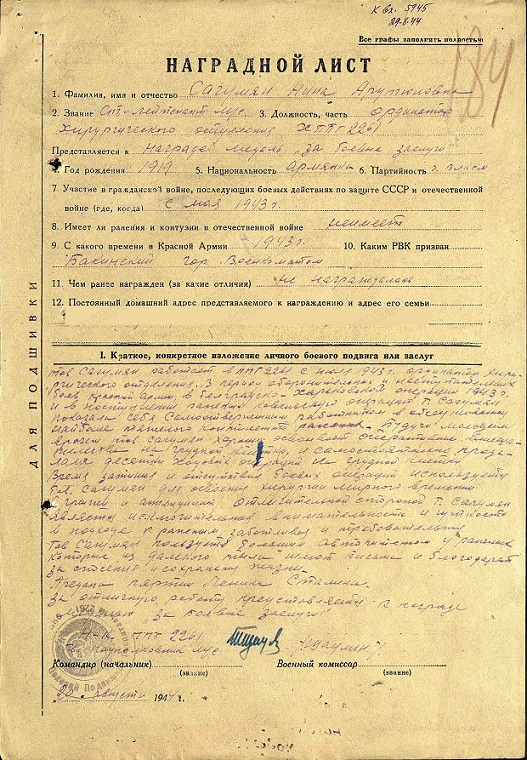 К вх. 5945
29.8.44
Все графы заполнять полностью
184
НАГРАДНОЙ ЛИСТ
1. Фамилия, имя и отчество Сагумян Нина Арутюновна
2. Звание Ст. лейтенант м/с. 3. Должность, часть ординатор
хирургического отделения ХППГ 2261
Представляется к Награде медаль "за боевые заслуги"
4. Год рождения 1919 5. Национальность Армянка 6. Партийность
7. Участие в гражданской войне, последующих боевых действиях по защите СССР и отечественной
войне (где, когда) с мая 1943 г.
8. Имеет ли ранения и контузии в отечественной войне неимеет
9. С какого времени в Красной Армии 1943 г. 10. Каким РВК призван
Бакинский гор. Военкоматом
11. Чем ранее награжден (за какие отличия) не награждалась
12. Постоянный домашний адрес представляемого к награждению и адрес его семьи
ДЛЯ ПОДШИВКИ
I. Краткое, конкретное изложение личного боевого подвига или заслуг
Тов Сагумян работает в ППГ 2261 с июля 1943 г. ординатор хирур-
гического отделения. В период оборонительных и наступательных
боев красной армии, в белградско-харьковской операции 1943 г.
и в операции т. Сагумян
показала себя самоотверженным работником в обслуживании
наиболее тяжелого контингента Будучи молодым
врачом тов Сагумян хорошо освоила оперативные вмеша-
тельства на грудной клетки, и самостоятельно проде-
лала десятки операций на грудной клетки
Время затишья и отсутствия боевых операций
т. Сагумян для освоения хирургии мирного времени
Отличительной стороной т. Сагумян
является исключительная внимательность и чуткость
в подходе к раненым заботливая и требовательна
Тов Сагумян пользуется большой авторитетом у раненых
которые из далекого тыла шлют письма и благодарят
за спасение и сохранение жизни.
Предана партии Ленина Сталина.
За отличную работу представляется к награде
"за боевые заслуги"
Н-к ППГ 2261
Подполковник м/с
Командир (начальник)
(звание)
Военный комиссар
(звание)
22 Августа 1944 г.